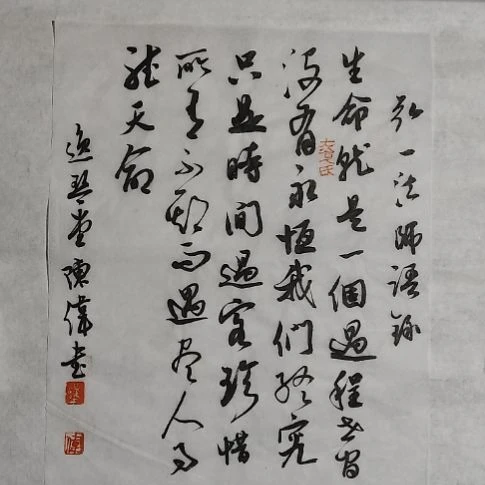 弘一法師語録
生命就是一個過程世间
没有永恆我們終究
只是時間過客珍惜
所有不期而遇尽人事
聽天命
逸琴堂陳偉書